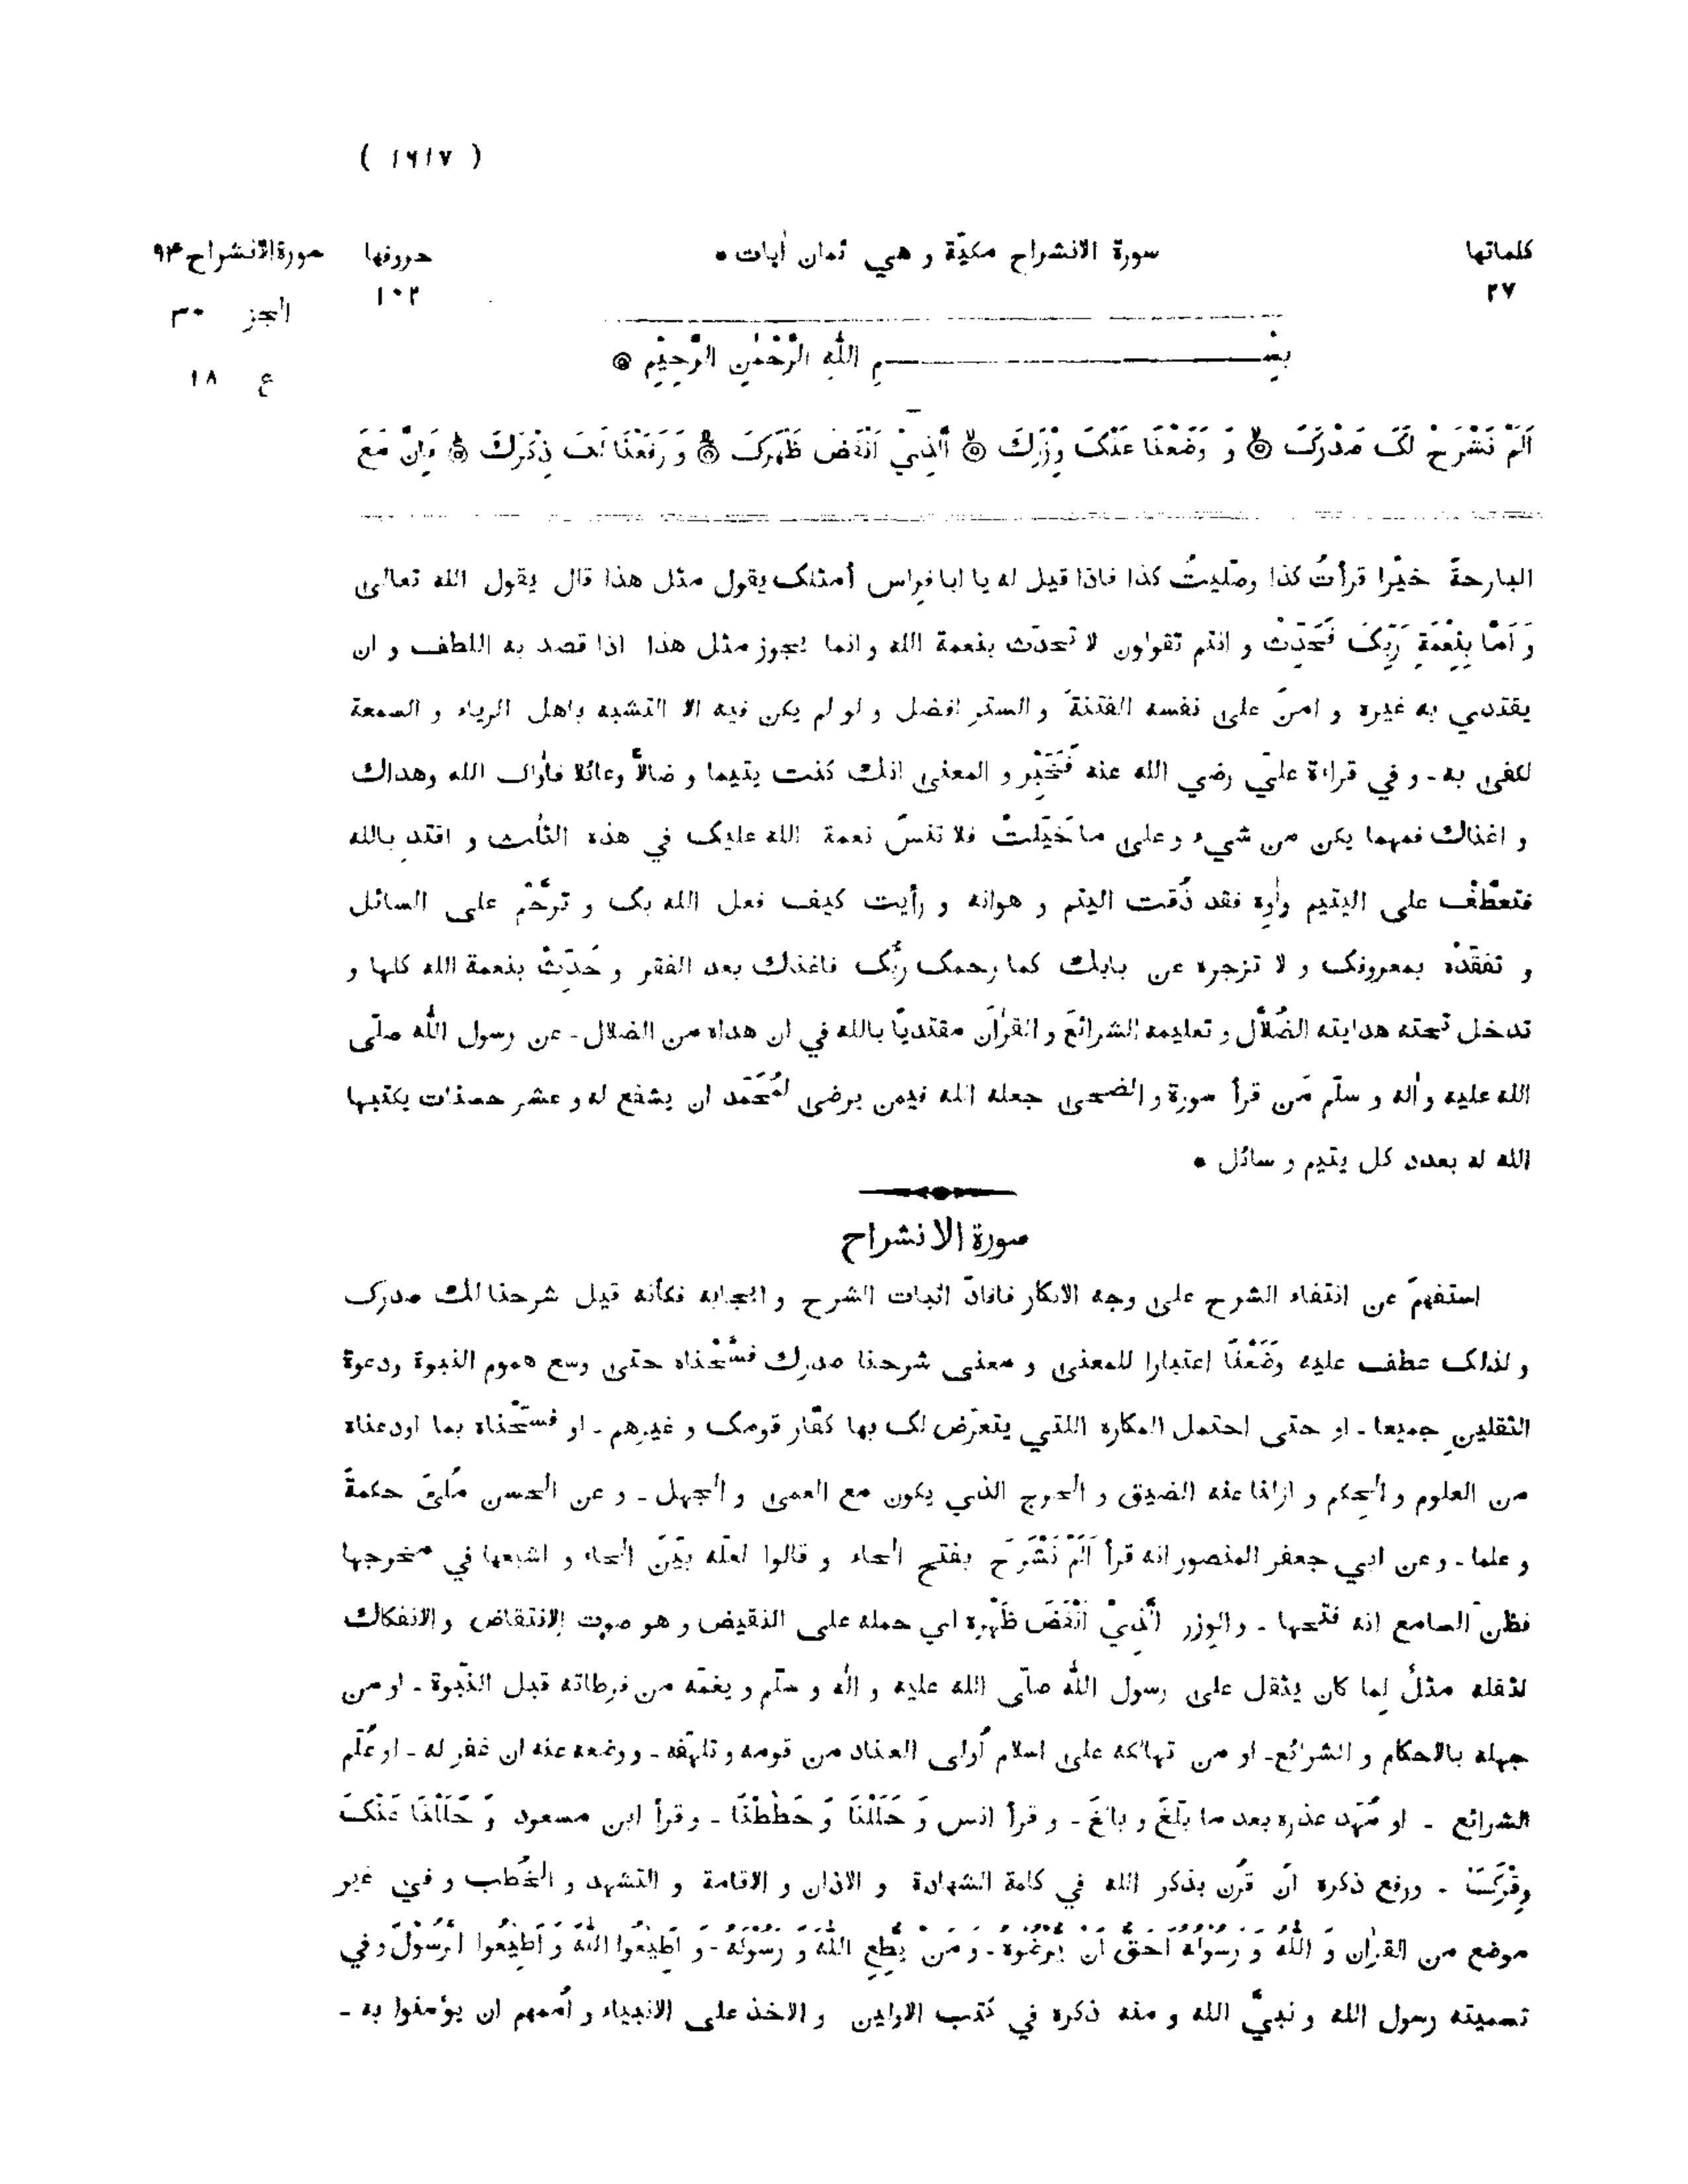 ( ١٦١٧ )
كلماتها ٢٧ سورة الانشراح مكيّة و هي ثمان أيات • حروفها ١٠٢ سورةالانشراح ٩۴
الجز ٣٠
ع ١٨
بِسْــــمِ اللّٰهِ الرَّحْمٰنِ الرَّحِيْمِ ◎
اَلَمْ نَشْرَحْ لَكَ صَدْرَكَ ◎ وَ وَضَعْنَا عَنْكَ وِزْرَكَ ◎ الَّذِيْ اَنْقَضَ ظَهْرَكَ ◎ وَ رَفَعْنَا لَكَ ذِكْرَكَ ◎ فَاِنَّ مَعَ
البارحةَ خيْرا قرأتُ كذا وصّليتُ كذا فاذا قيل له يا ابا فراس أمثلك يقول مثل هذا قال يقول الله تعالى
وَ اَمَّا بِنِعْمَةِ رَبِّكَ فَحَدِّثْ و انتم تقولون لا تحدّث بنعمة الله و انما يجوز مثل هذا اذا قصد به اللطف و ان
يقتدي به غيره و امنَ على نفسه الفتنة و الستر افضل و لو لم يكن فيه الا التشبه باهل الرياء و السمعة
لكفى به ـ و في قراءة عليّ رضي الله عنه فَخَبِّرْ و المعنى انك كنت يتيما و ضالّاً وعائلا فأواك الله وهداك
و اغناك فمهما يكن من شيء و على ما خَيَّلتْ فلا تنسَ نعمة الله عليك في هذه الثلث و اقتد بالله
فتعطَّفْ على اليتيم وأوِه فقد ذُقت اليتم و هوانه و رأيت كيف فعل الله بك و ترحَّمْ على السائل
و تفقّدْه بمعروفك و لا تزجره عن بابك كما رحمك ربُّك فاغناك بعد الفقر و حَدِّثْ بنعمة الله كلها و
تدخل تحته هدايته الضُلّال و تعليمه الشرائعَ و القرأن مقتديًا بالله في ان هداه من الضلال ـ عن رسول الله صلّى
الله عليه وأله و سلّم مَن قرأ سورة والضحى جعله الله فيمن يرضى لمُحَمّد ان يشفع له و عشر حسنات يكتبها
الله له بعدد كل يتيم و سائل •
سورة الانشراح
استفهمَ عن انتفاء الشرح على وجه الانكار فافادَ اثبات الشرح و ايجابه فكأنه قيل شرحنا لك صدرك
و لذلك عطف عليه وَضَعْنَا اعتبارا للمعنى و معنى شرحنا صدرك فسّحْناه حتى وسع هموم النبوة ودعوة
الثقلينِ جميعا ـ او حتى احتمل المكاره اللتي يتعرّض لك بها كفّار قومك و غيرهم ـ او فسّحْناه بما اودعناه
من العلوم و الحِكم و ازلنا عنه الضيق و الحرج الذي يكون مع العمى و الجهل ـ و عن الحسن مُلئَ حكمةً
و علما ـ و عن ابي جعفر المنصور انه قرأ اَلَمْ نَشْرَحَ بفتح الحاء و قالوا لعلّه بيّنَ الحاء و اشبعها في مخرجها
فظن السامع انه فتحها ـ والوزر الَّذِيْ اَنْقَضَ ظَهْره اي حمله على النقيض و هو صوت الانتقاض والانفكاك
لثقله مثلٌ لِما كان يثقل على رسول اللّٰه صلّى الله عليه و أله و سلّم و يغمّه من فرطاته قبل النّبوة ـ او من
جهله بالاحكام و الشرائع ـ او من تهالكه على اسلام أولى العناد من قومه و تلهّفه ـ ووضعه عنه ان غفر له ـ او عُلّم
الشرائع ـ او مُهّد عذره بعد ما بلّغَ و بالغَ ـ و قرأ انس وَ حَلَلْنَا وَ حَطَطْنَا ـ وقرأ ابن مسعود وَ حَلَلْنَا عَنْكَ
وِقْرَكَ ـ ورفع ذكره انْ قُرن بذكر الله في كلمة الشهادة و الاذان و الاقامة و التشهد و الخُطب و في غير
موضع من القرأن وَ اللّٰهُ وَ رَسُوْلُهُ اَحَقُّ اَنْ يُرْضُوْهُ ـ وَ مَنْ يُطِعِ اللّٰهَ وَ رَسُوْلَهُ ـ وَ اَطِيْعُوا اللّٰهَ وَ اَطِيْعُوا الرَّسُوْلَ و في
تسميته رسول الله و نبيَّ الله و منه ذكره في كتب الاولين و الاخذ على الانبياء و أممهم ان يؤمنوا به ـ